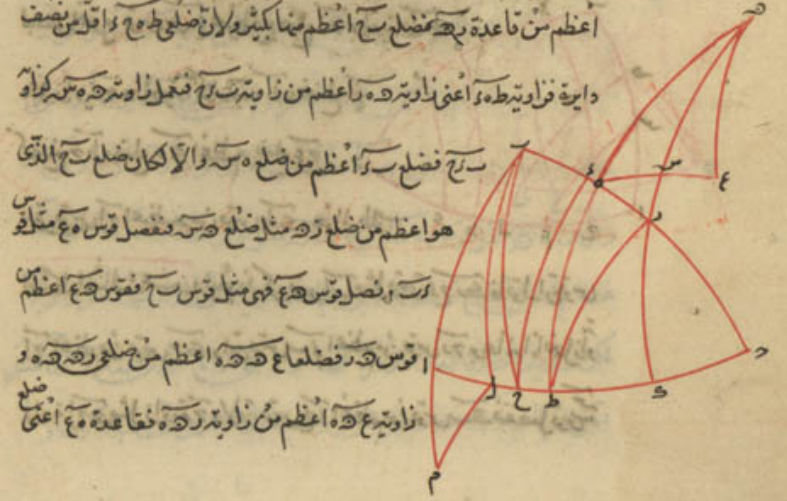 أعظم من قاعدة رهـ فضلع ب ح أعظم منها بكثير ولان ضلعى ط ه ح ء اقل من نصف
دايرة فزاوية ط ه ء أعنى زاوية ر ه د أعظم من زاوية ب ر ح فنعمل زاوية ه ه س كزاوية
ب ر ح فضلع ب ء أعظم من ضلع ه س والا لكان ضلع ب ح الذى
هو اعظم من ضلع ر ه مثل ضلع ه س فنفصل قوس ه ع مثل قوس
ء ب ونصل قوس ه ع فهى مثل قوس ب ح فقوس ه ع اعظم من
قوس ه ر فضلعا ع ه ه ه اعظم من ضلعى ر ه ه ه و
زاوية ع ه ه أعظم من زاوية ر ه ه فقاعدة ه ع أعنى ضلع
ه
س
ع
ء
ب
ر
د
ا
ل
ح
ط
ى
م